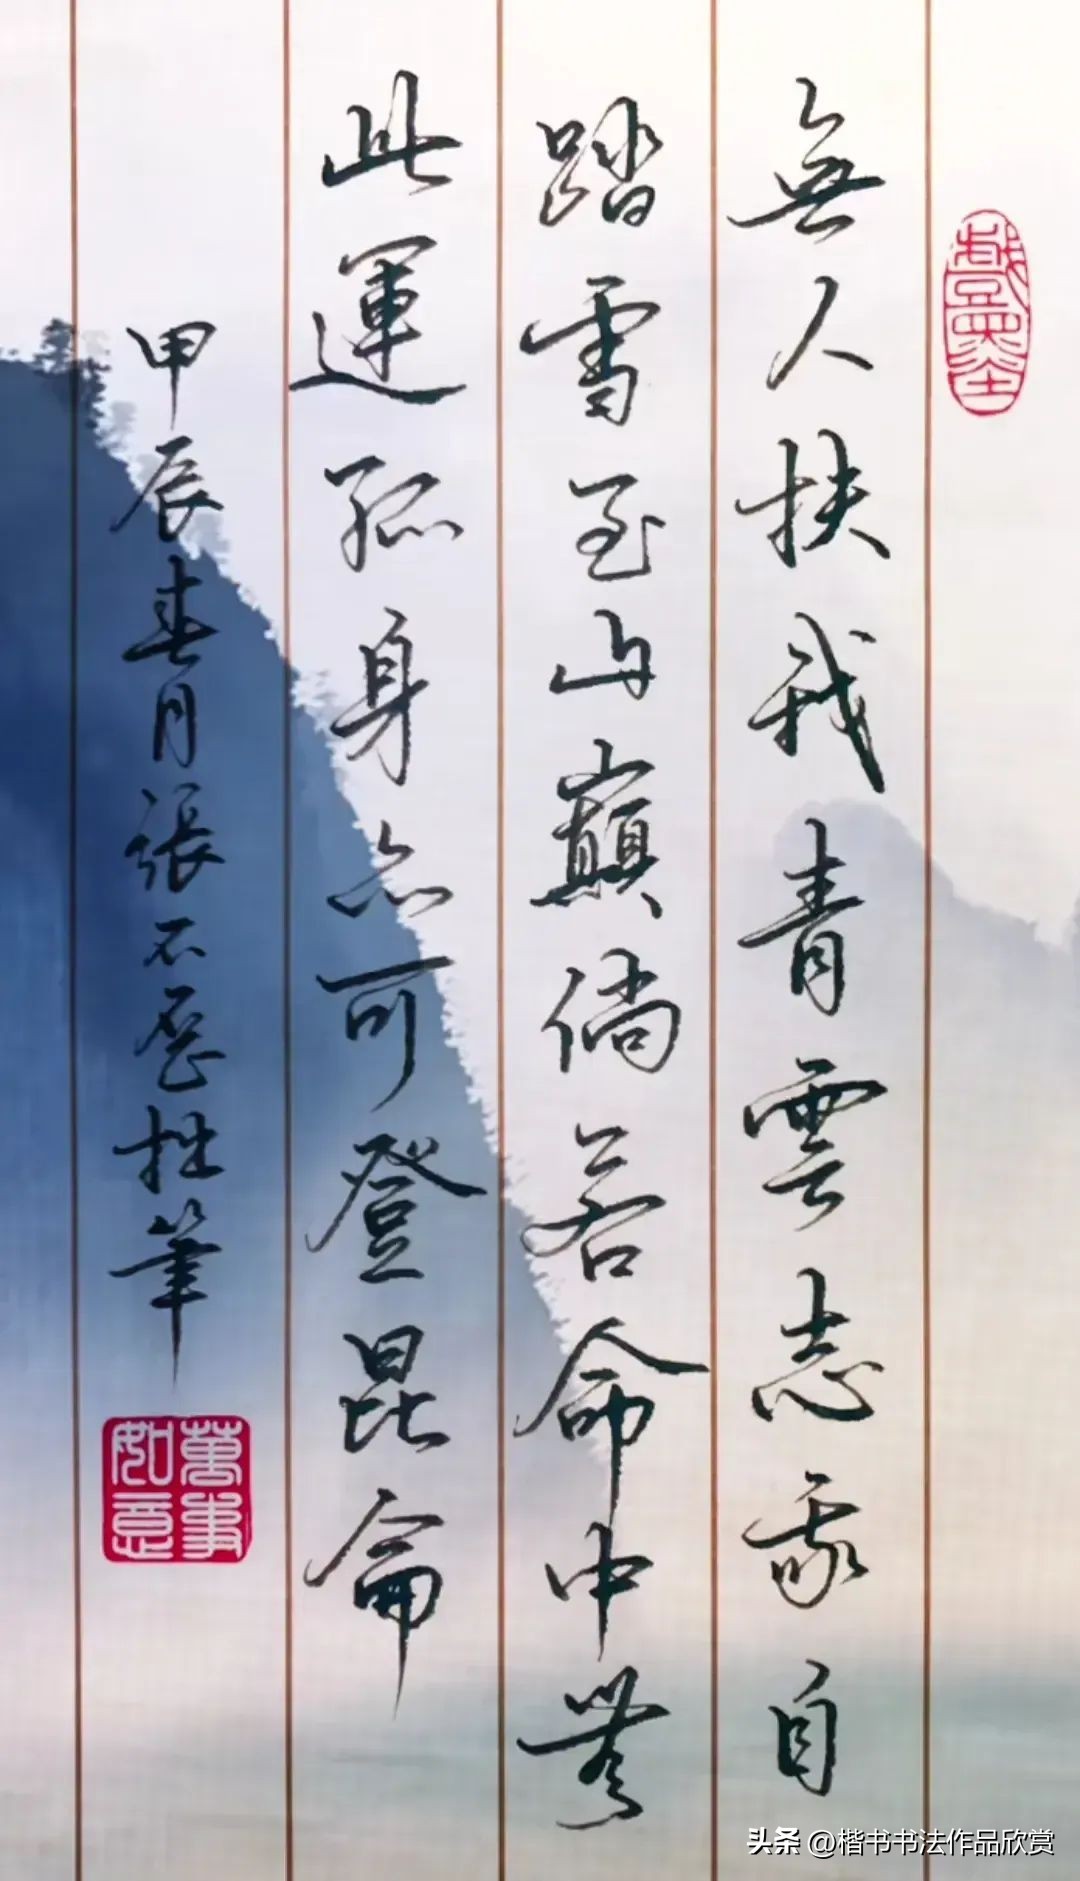 無人扶我青雲志我自
踏雪至山巔倘若命中無
此運孤身亦可登昆侖
甲辰春月張不愚拙筆
萬事
如意
头条 @楷书书法作品欣赏